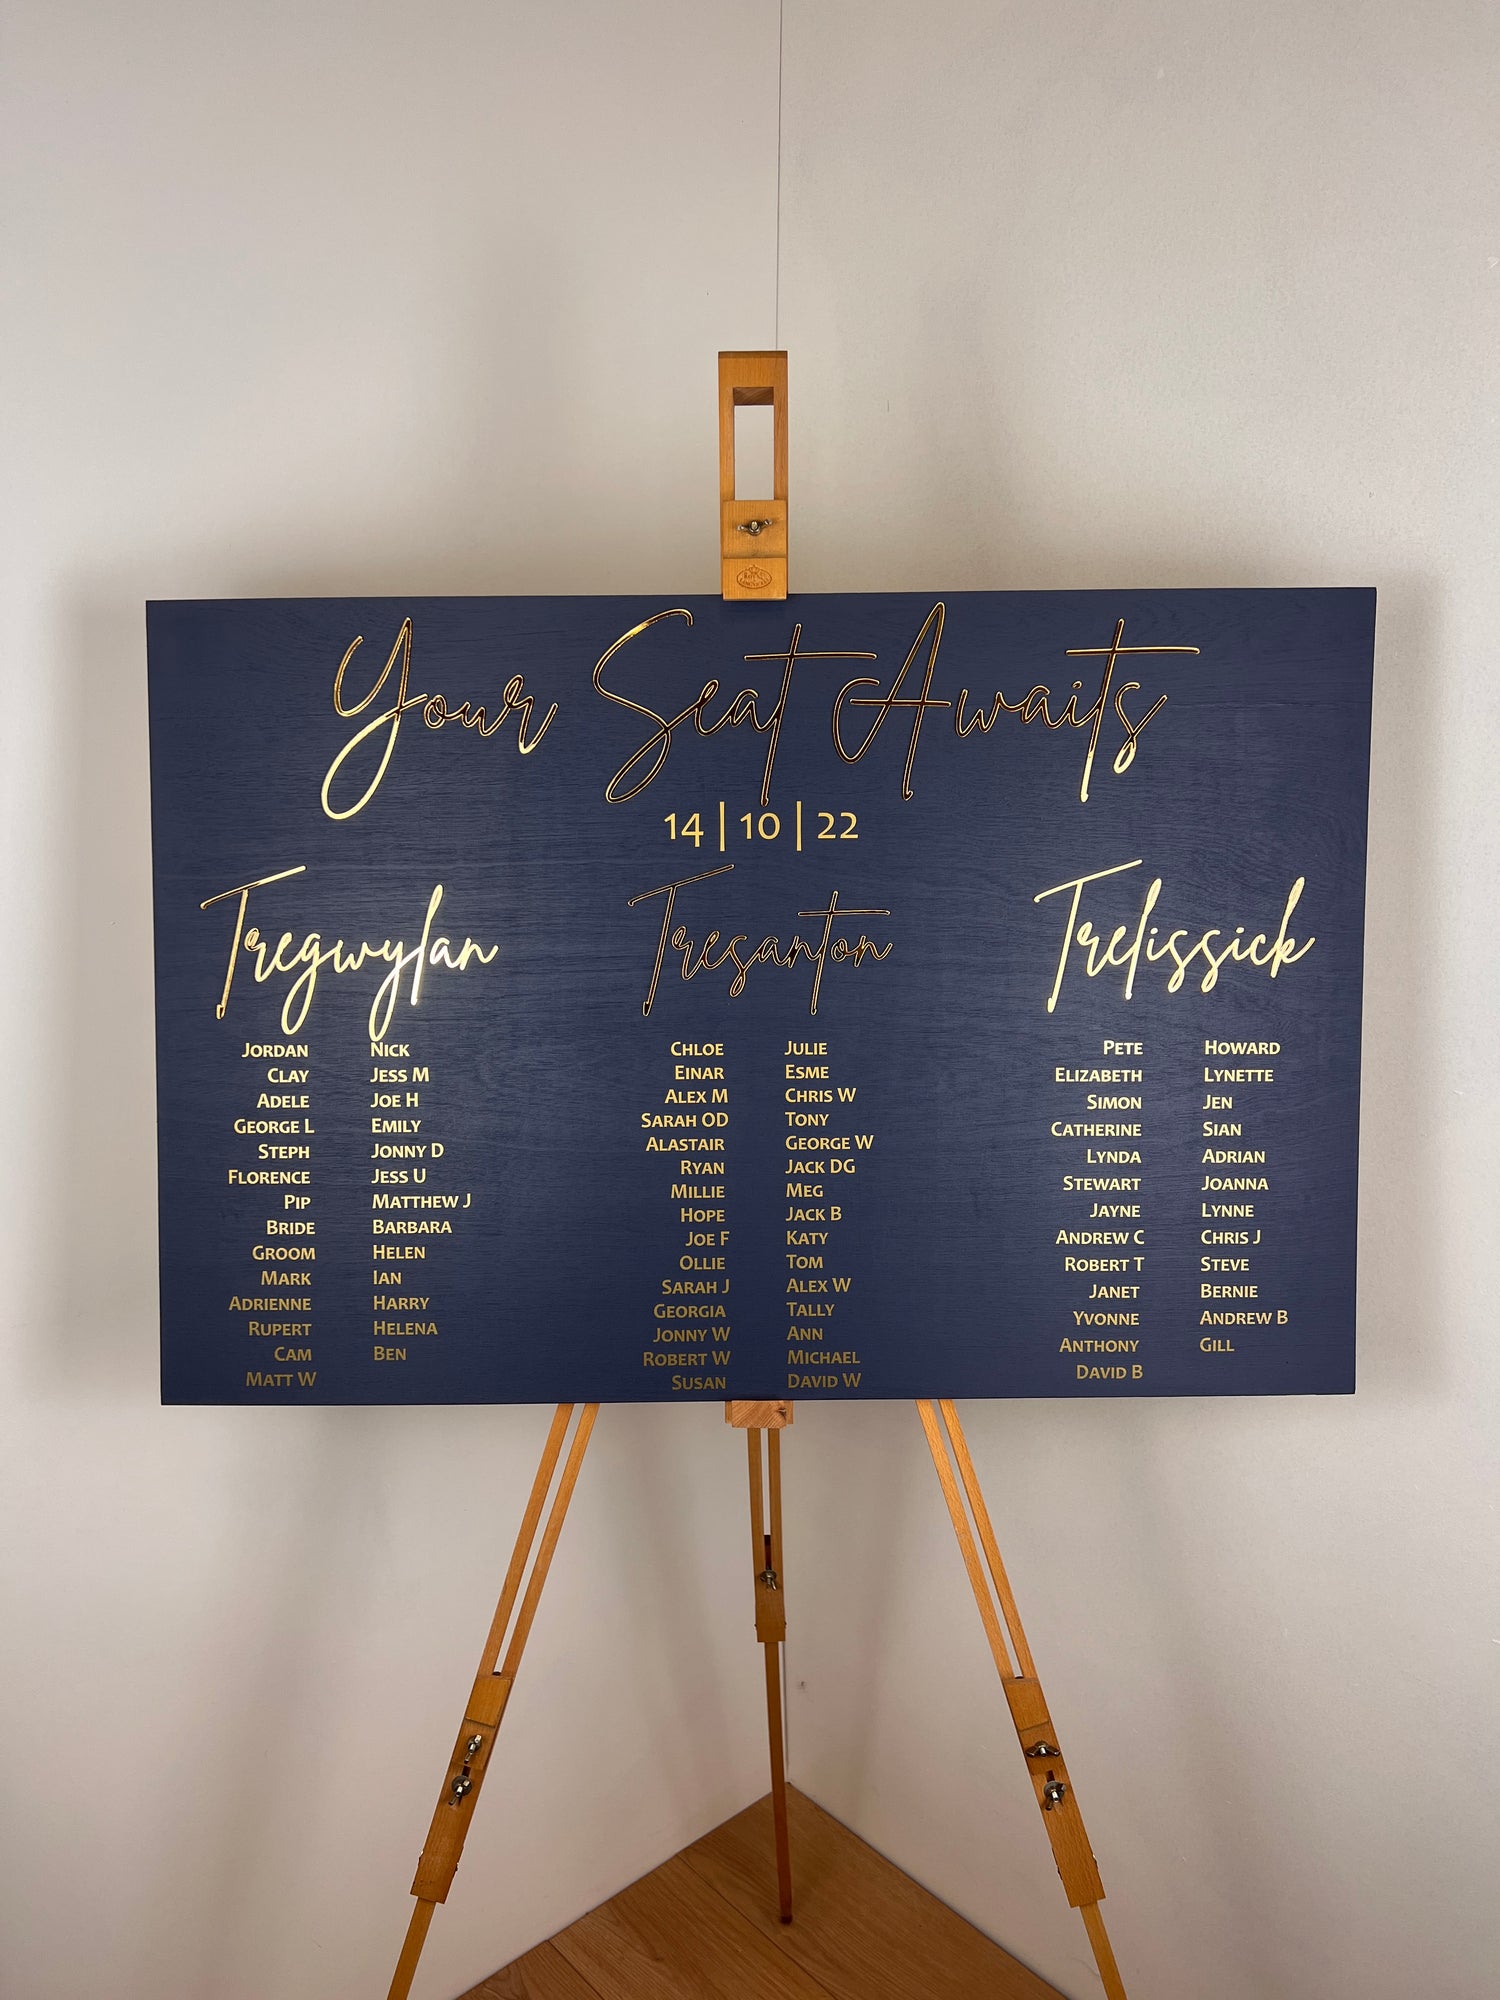 Your Seat Awaits
14 | 10 | 22
Tregwylan
JORDAN NICK
CLAY JESS M
ADELE JOE H
GEORGE L EMILY
STEPH JONNY D
FLORENCE JESS U
PIP MATTHEW J
BRIDE BARBARA
GROOM HELEN
MARK IAN
ADRIENNE HARRY
RUPERT HELENA
CAM BEN
MATT W
Tresanton
CHLOE JULIE
EINAR ESME
ALEX M CHRIS W
SARAH OD TONY
ALASTAIR GEORGE W
RYAN JACK DG
MILLIE MEG
HOPE JACK B
JOE F KATY
OLLIE TOM
SARAH J ALEX W
GEORGIA TALLY
JONNY W ANN
ROBERT W MICHAEL
SUSAN DAVID W
Trelissick
PETE HOWARD
ELIZABETH LYNETTE
SIMON JEN
CATHERINE SIAN
LYNDA ADRIAN
STEWART JOANNA
JAYNE LYNNE
ANDREW C CHRIS J
ROBERT T STEVE
JANET BERNIE
YVONNE ANDREW B
ANTHONY GILL
DAVID B